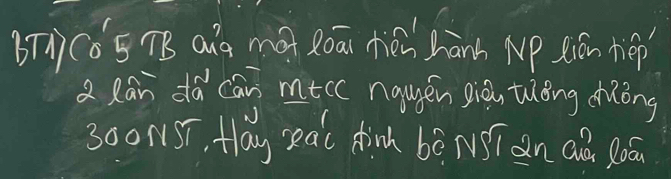 BT1) Có 5 TB của một loài tiến hành NP liên tiếp
2 lần đã cần mtcc nguyên liệu tương đương
300 NST. Hãy xác định bộ NST 2n của loài